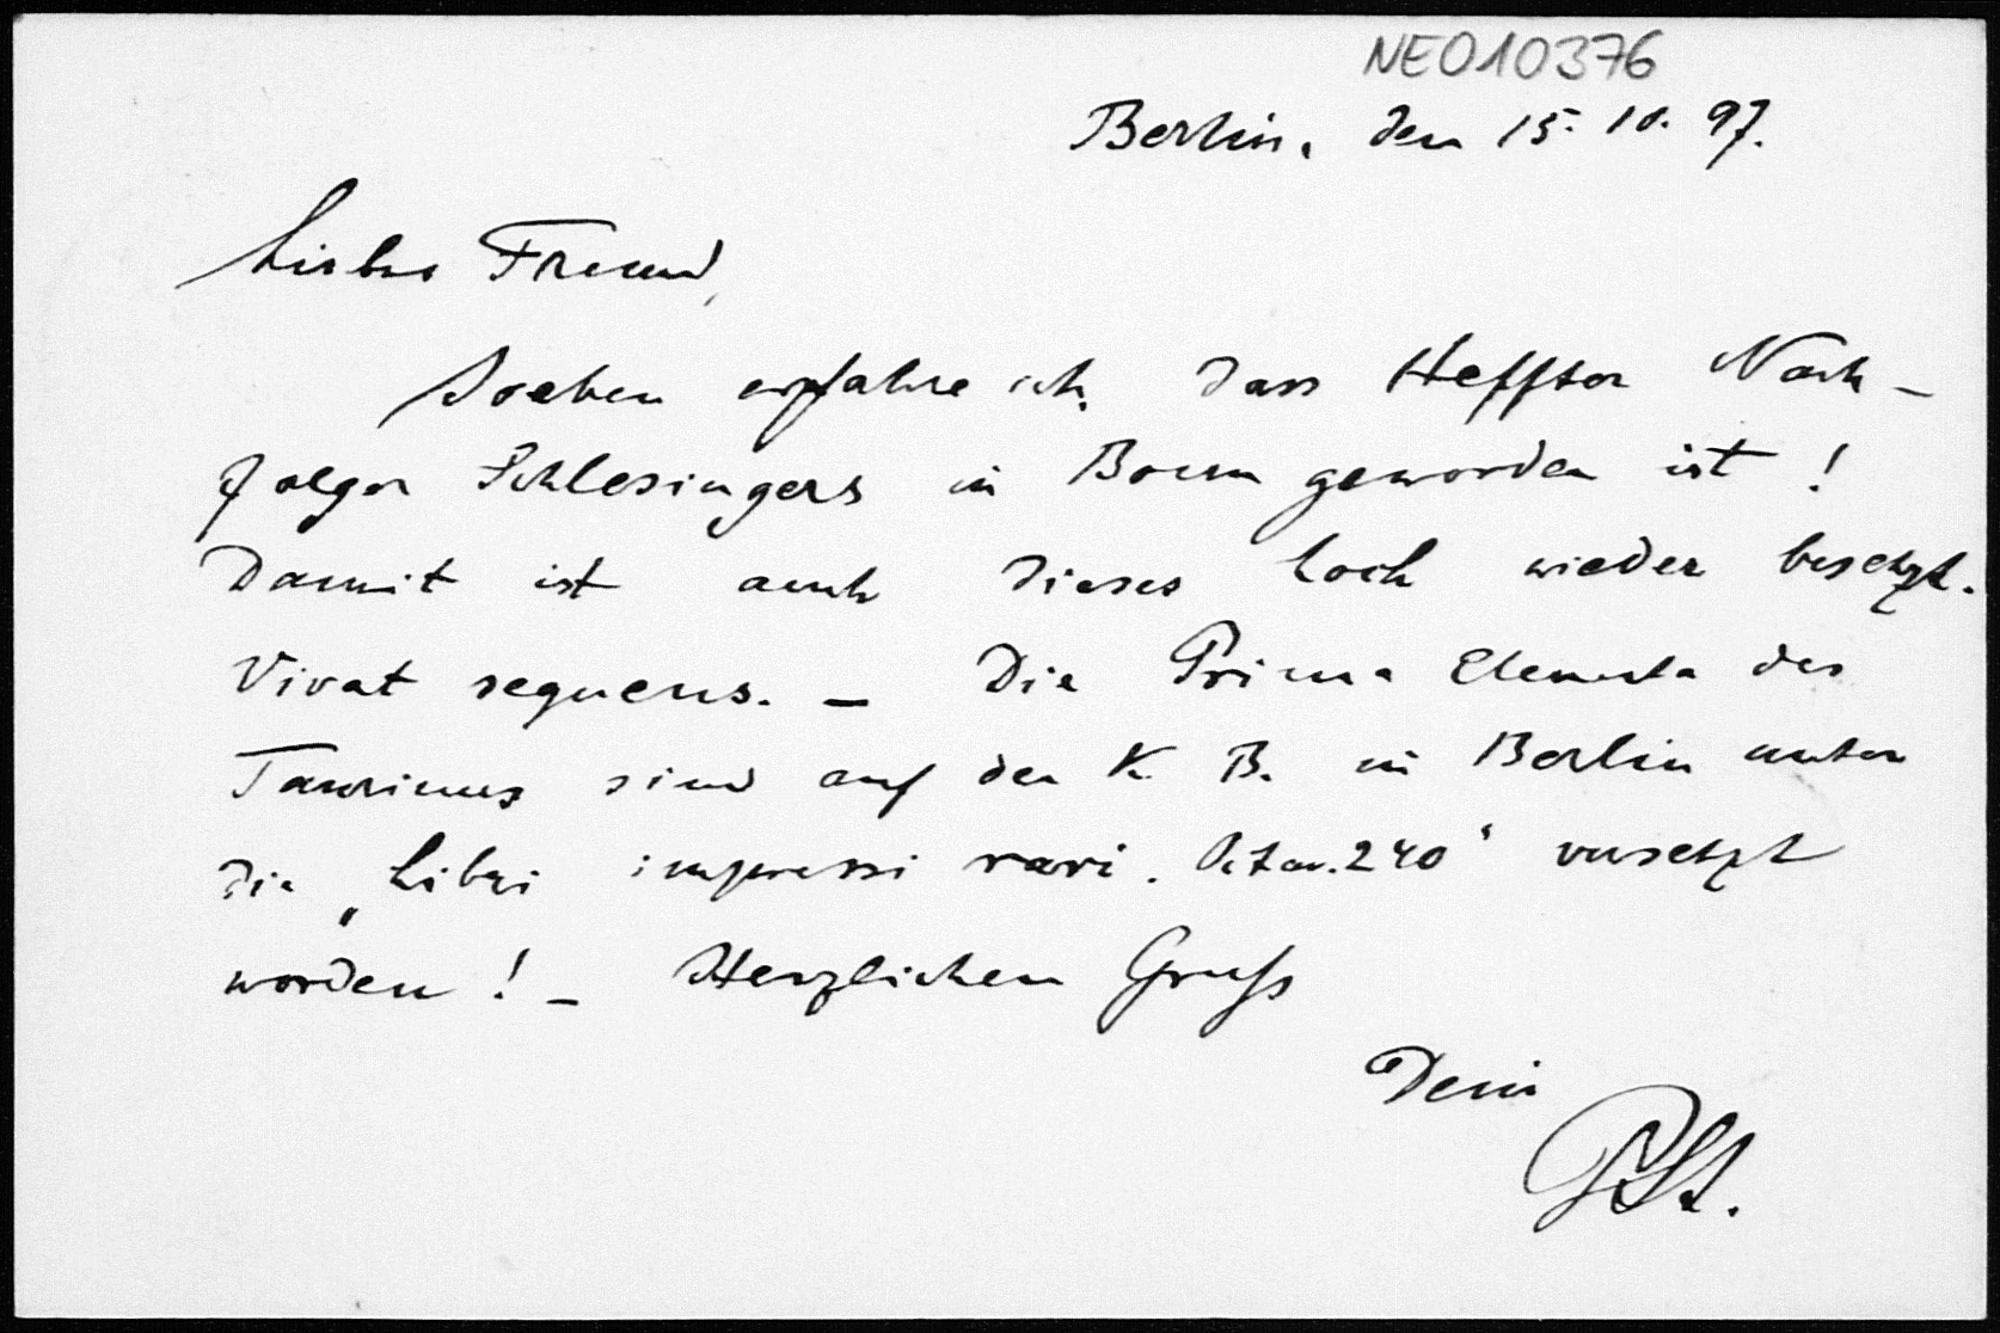 NE010376
Berlin, den 15. 10. 97.
Lieber Freund,
Soeben erfahre ich, dass Heffter Nach-
folger Schlesingers in Bonn geworden ist!
Damit ist auch dieses Loch wieder besetzt.
Vivat sequens. – Die Prima Elementa des
Taurinus sind auf der K. B. in Berlin unter
die „Libri impressi rari. Octav. 240“ versetzt
worden! – Herzlichen Gruss
Dein
PSt.